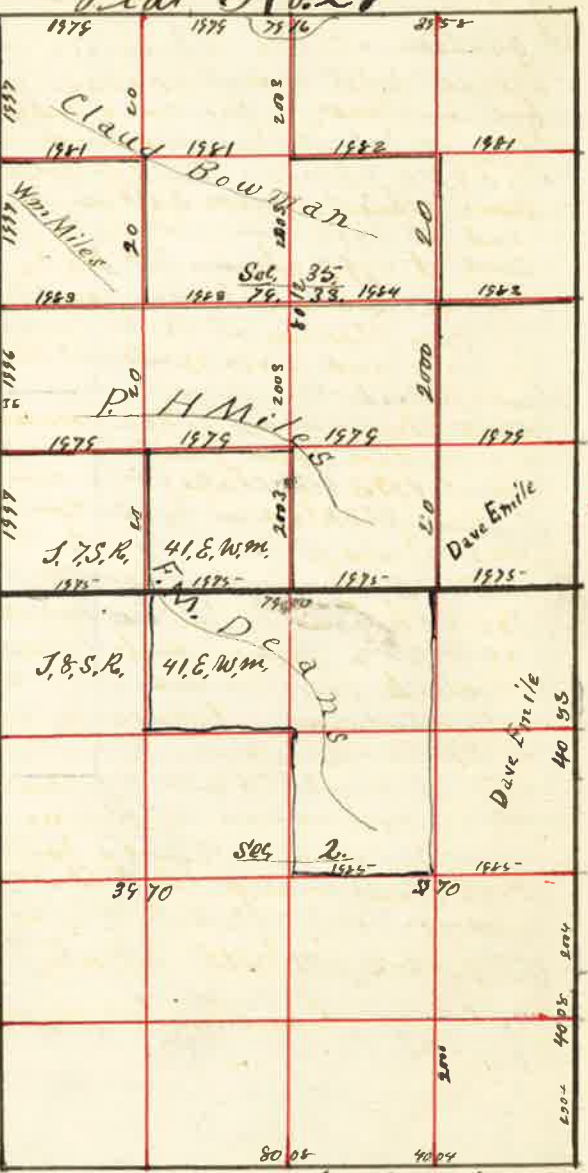 No. 2
1979 1979 7916 3958
1997 20 2003
Claud Bowman
1981 1981 1982 1981
1997 20 2003 20
Wm Miles
Sec, 35.
79. 33.
1983 1983 8012 1984 1983
1996 20 2003 2000
P. H Miles
1979 1979 1979 1979
1997 20 2003 20
Dave Emile
T. 7, S. R. 41, E, W, m.
1975 1975 1975 1975
7900
F. M. Deans
T. 8, S, R, 41, E, W, m.
Dave Emile
40 93
Sec, 2.
1985 1985
3970 3970
2004
4008
2000
2004
8008 4004